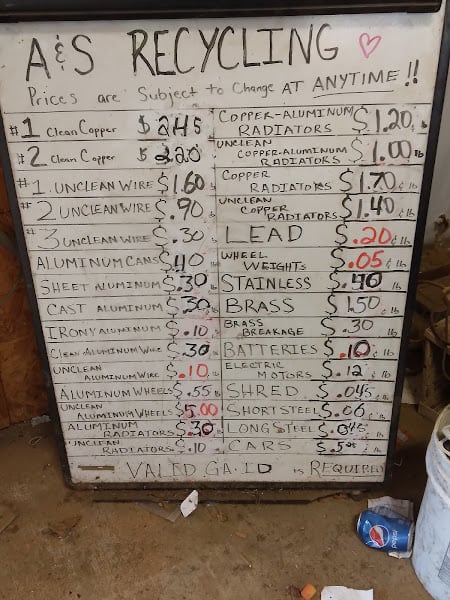 A & S RECYCLING
Prices are Subject to Change AT ANYTIME!!
#1 Clean Copper $2.45
#2 Clean Copper $2.20
#1 UNCLEAN WIRE $1.60
#2 UNCLEAN WIRE $.90
#3 UNCLEAN WIRE $.30
ALUMINUM CANS $.40
SHEET ALUMINUM $.30
CAST ALUMINUM $.30
IRONY ALUMINUM $.10
Clean ALUMINUM Wire $.30
UNCLEAN ALUMINUM WIRE $.10
ALUMINUM WHEELS $.55 lb
UNCLEAN ALUMINUM WHEELS $5.00
ALUMINUM RADIATORS $.30
UNCLEAN RADIATORS $.10
COPPER-ALUMINUM RADIATORS $1.20 lb
UNCLEAN COPPER-ALUMINUM RADIATORS $1.00 lb
COPPER RADIATORS $1.70 ¢ lb
UNCLEAN COPPER RADIATORS $1.40 ¢ lb
LEAD $.20 ¢ lb
WHEEL WEIGHTS $.05 ¢ lb
STAINLESS $.40 lb
BRASS $1.50 lb
BRASS BREAKAGE $.30 lb
BATTERIES $.10 ¢ lb
ELECTRIC MOTORS $.12 ¢ lb
SHRED $.045 ¢ lb
SHORT STEEL $.06 ¢ lb
LONG STEEL $.045 ¢ lb
CARS
VALID GA. ID is REQUIRED
pepsi